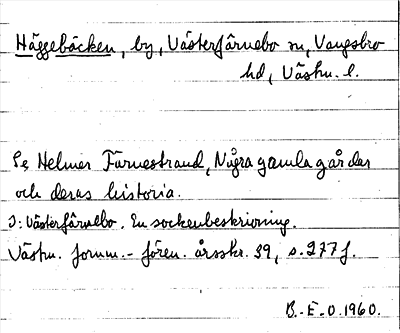 Häggebäcken, by, Västerfärnebo sn, Vangsbro
hd, Västm. l.
Se Helmer Furnestrand, Några gamla gårdar
och deras historia.
I: Västerfärnebo. En sockenbeskrivning.
Västm. fornm.-fören. årsskr. 39, s. 277 f.
B.-E.O. 1960.